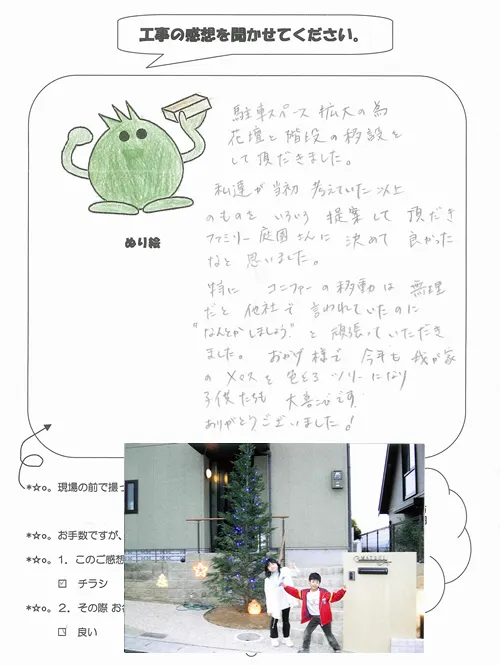 工事の感想を聞かせてください。
駐車スペース拡大の為
花壇と階段の移設を
して頂だきました。
私達が当初 考えていた以上
のものを いろいろ 提案して 頂だき
ファミリー庭園さんに 決めて 良かった
なと 思いました。
特に コニファーの移動は 無理
だと 他社で 言われていたのに
"なんとかしましょう"と 頑張っていただき
ました。 おかげ様で 今年も 我が家
の Xマスを 色どる ツリーになり
子供たちも 大喜びです。
ありがとうございました!
ぬり絵
*☆o。現場の前で撮っ
*☆o。お手数ですが、
*☆o。1．このご感想
☑ チラシ
*☆o。2．その際 お
良い